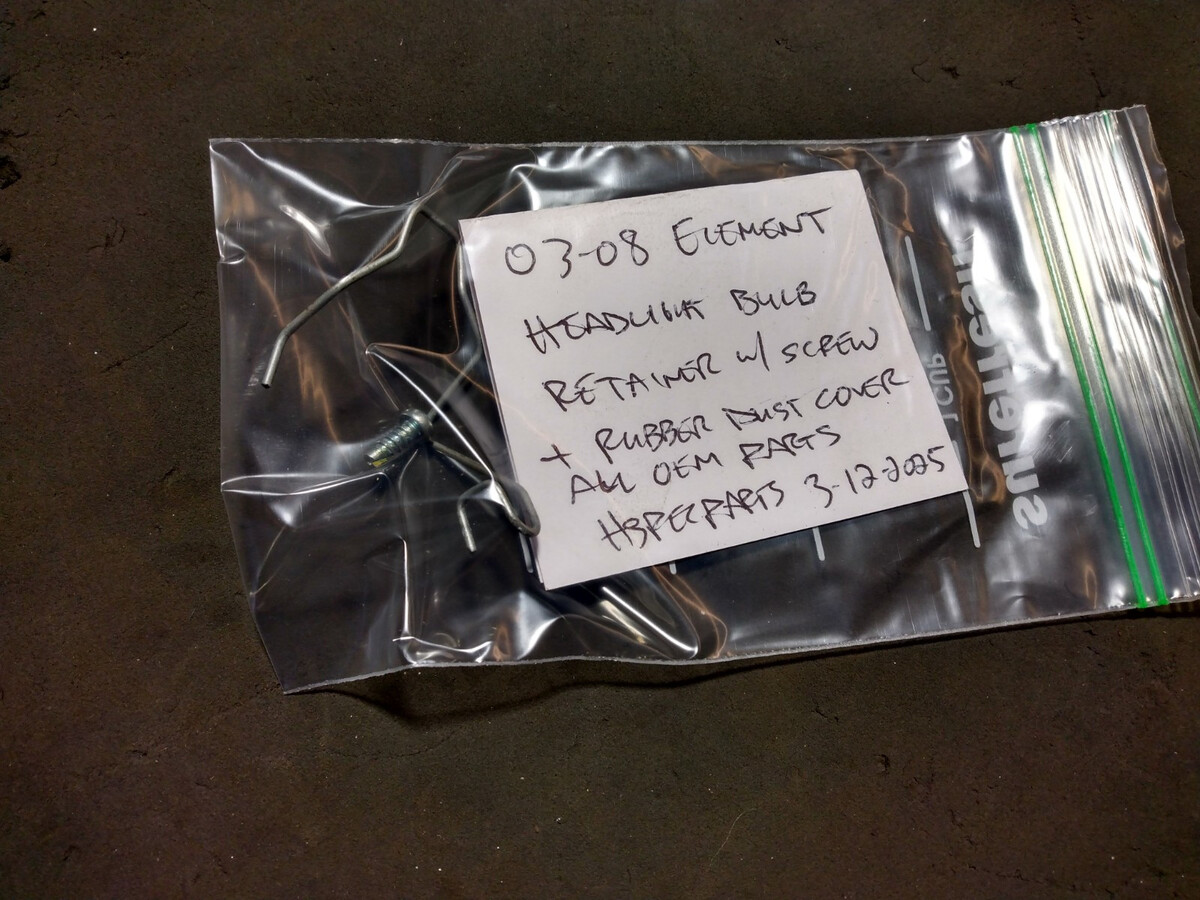 03-08 ELEMENT
HEADLIGHT BULB
RETAINER W/ SCREW
+ RUBBER DUST COVER
ALL OEM PARTS
H3PERPARTS 3-12-2025
1 CUP